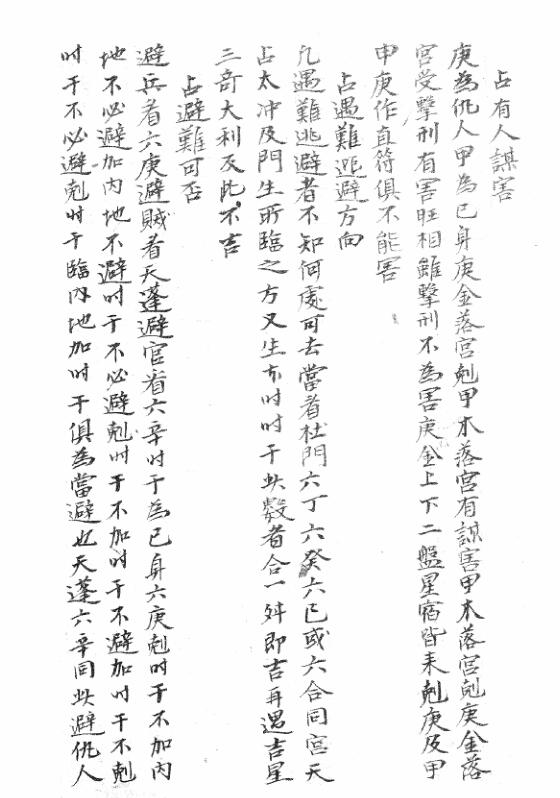 占有人謀害
庚為仇人甲為已身庚金落宮剋甲木落宮有謀害甲木落宮剋庚金落
宮受擊刑有害旺相雖擊刑不為害庚金上下二盤星宿皆来剋庚及甲
甲庚作直符俱不能害
占遇難逃避方向
凡遇難逃避者不知何處可去當看杜門六丁六癸六已或六合同宮天
占太冲及門生所臨之方又生本时时干此數者合一舛即吉再遇吉星
三奇大利反此不吉
占避難可否
避兵者六庚避賊者天蓬避官者六辛时干為已身六庚剋时干不加內
地不必避加內地不避时干不必避剋时干不加时干不避加时干不剋
时干不必避剋时干臨內地加时干俱為當避也天蓬六辛同此避仇人